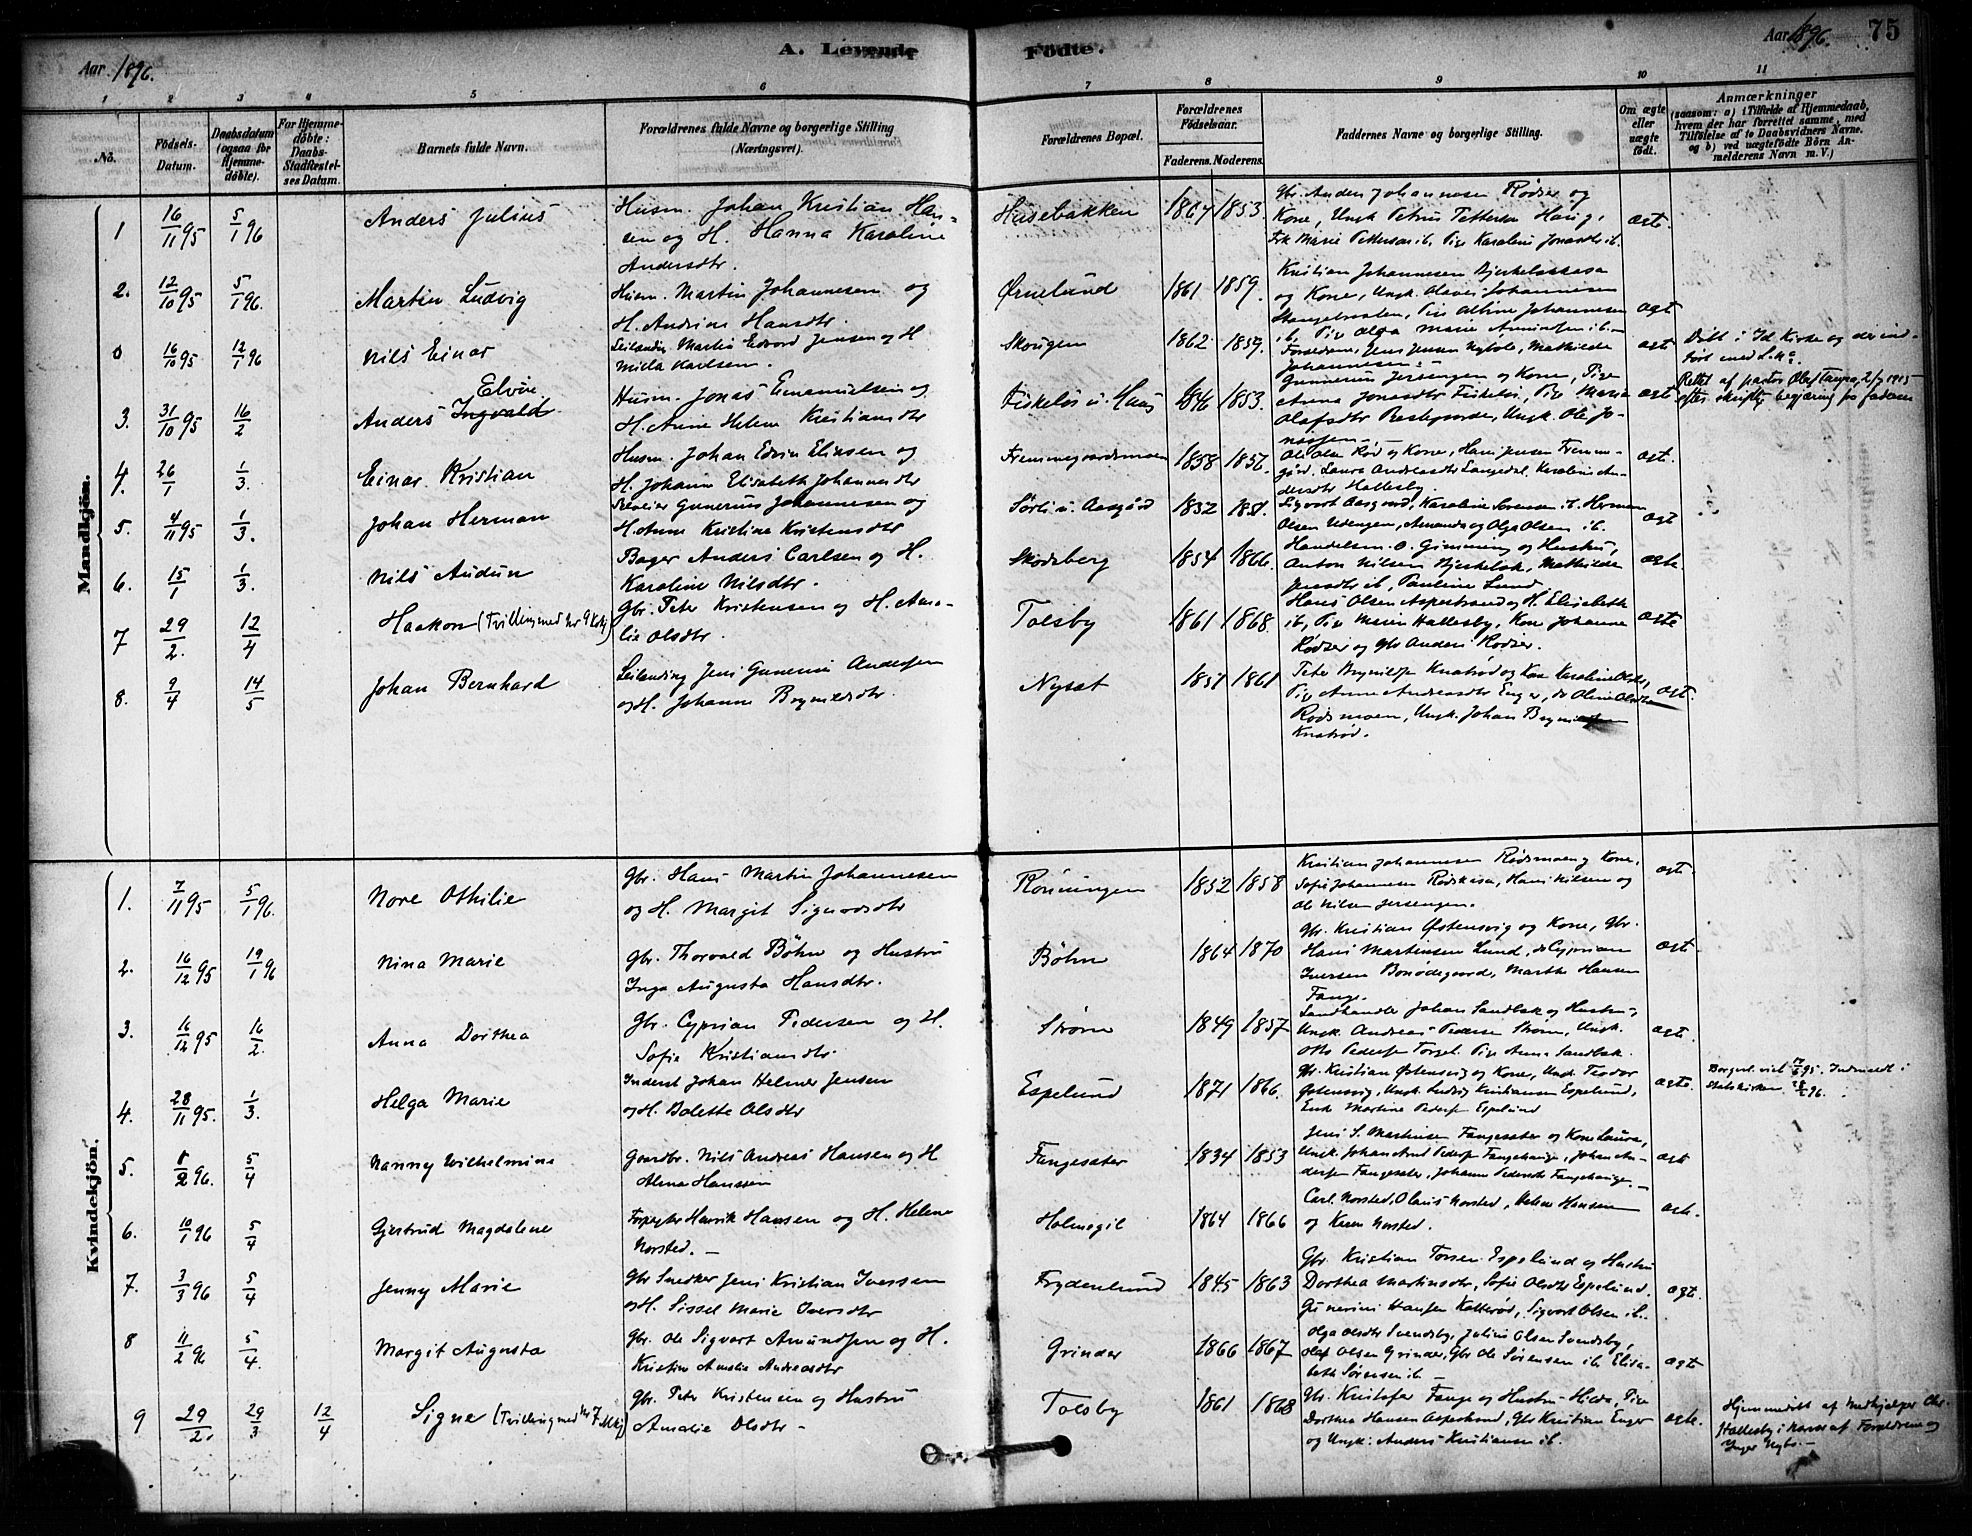 A. Levende Födte.
Aar 1896.
Aar 1896. 75
1 2 3 4 5 6 7 8 9 10 11
No.
Födsels-Datum.
Daabsdatum (ogsaa for Hjemmedöbte).
For Hjemmedöbte: Daabs-Stadfæstelses Datum.
Barnets fulde Navn.
Forældrenes fulde Navne og borgerlige Stilling (Næringsvei).
Forældrenes Bopæl.
Forældrenes Födselsaar.
Faderens. Moderens.
Faddernes Navne og borgerlige Stilling.
Om ægte eller uægte födt.
Anmærkninger
(saasom: a) i Tilfælde af Hjemmedaab, hvem der har forrettet samme, med Tilföielse af to Daabsvidners Navne. og b) ved uægtefödte Börn Anmelderens Navn m. V.)
Mandkjön.
1 16/11 95 5/1 96 Anders Julius Husm. Johan Kristian Hansen og H. Hanna Karoline Andersdtr. Husebakken 1867 1853. Gbr. Anders Johannesen Rödser og Kone, Ungk. Petrus Pettersen Haug, Pige Karoline Jonasdtr ib. ægte.
2. 12/10 95 5/1 96. Martin Ludvig Husm. Martin Johannesen og H. Andrine Hansdtr. Ørnelund 1861 1859. Kristian Johannesen og Kone, Ungk. Olaves Johannesen Pige Albine Johannesen ib, Pige Olga Marie ib. ægt
0 16/10 95 12/1 96 Nils Einar Leilænding Martin Edvard Jensen og H. Milla Karlsen. Skougen 1862 1859. Jens Jensen Nybole, Mathilde Johannesen. ægt Döbt i Id Kirke og der indfört med L. No.
3. 31/10 95 16/2 Anders Ingvald Elvin Husm. Jonas Emanuelsen og H. Anne Helene Kristiansdtr Fiskelös u. Haug 1846 1853. Gunnerius Jersengen og Kone, Pige Anna Jonasdtr Fiskelös, Pige Maria Olafsdtr Ungk. Ole Jonassen ægt Rettet af pastor Olaf Tanga 2/7 1915 efter skriftlig begjæring fra faderen
4. 26/1 1/3. Einar Kristian Husm. Johan Edvin Eliasen og H. Johanne Elisabeth Johannesdtr Fremmegaardsmoen 1858 1857. Ole Olsen Röd og Kone, Hans Jensen Fremmegård. Laura Andreasdtr Langedal, Karoline Andersdtr Hallesby. ægt.
5. 4/11 95 1/3. Johan Herman Gunerius Johannesen og H. Anne Kristine Kristensdtr Sörli u. Aasgård 1852 1851. Sigvart Aasgaard, Karoline Sörensen ib. Herman Olsen Udengen, Amanda og Olga Olsen ib. ægt
6. 15/1 1/3. Nils Audun Bager Anders Carlsen og H. Karoline Nilsdtr. Skodsberg 1854 1866. Handelsm. O. Gimming og Hustru, Anton Nilsen Bjerkelök, Mathilde ib, Pauline Lund ægte.
7 29/2. 12/4 Haakon (Tvilling med No 9 Kvkj) Gbr. Peter Kristensen og H. Amalie Olsdtr. Tolsby 1861 1868. Hans Olsen Aspestrand og H. Elisabeth ib, Pige Maren Hallesby, Kone Johanne Rödser og Gbr Anders Rödser. ægte
8. 9/4 14/5 Johan Bernhard Leilænding Jens Gunerius Andersen og H. Johanne Brynildsdtr Nysæt 1857 1861 Peter Brynildsen Knatröd og Kone Karoline Olsdtr, Pige Anne Andreasdtr Enger, do Oline Olsdtr Rödsmoen, Ungk. Johan Brynildsen Knatröd. ægt.
Kvindekjön.
1. 7/11 95 5/1 96. Nora Othilie Gbr. Hans Martin Johannesen og H. Margit Sigvardsdtr Rönningen 1852 1858 Kristian Johannesen Rödsmoen og Kone, Sofie Johannesen Hans Nilsen og Ole Nilsen Jersengen. ægt.
2. 16/12 95 19/1 96 Nina Marie Gbr. Thorvald Böhn og Hustru Inga Augusta Hansdtr. Böhn 1864 1870 Gbr. Kristian Østensvig og Kone, Gbr. Hans Martinsen Lund, do Cyprian Iversen Bonödegaard, Marthe Hansen Fange. ægt.
3. 16/12 95 16/2. Anna Dorthea Gbr. Cyprian Pedersen og H. Sofie Kristiansdtr. Ström 1849 1857 Landhandler Johan Sandbæk og Hustru, Ungk. Andreas Pedersen Ström, Ungk. Otto Pedersen Torgal. Pige Anna Sandbæk. ægt.
4. 28/11 95. 1/3. Helga Marie Inderst Johan Helmer Jensen og H. Bolette Olsdtr Espelund 1871 1866. Gbr. Kristian Østensvig og Kone, Ungk. Teodor Östensvig, Ungk. Ludvig Kristiansen Espelund, Enke Martine Pedersen Espelund ægte. Borgerl. viet 17/5 95. Indmeldt i Statskirken 96.
5. 8/2 96. 5/4 Nanny Wilhelmine Gaardbr. Nils Andreas Hansen og H Alma Hanssen Fangesæter 1834 1853 Jens S. Martinsen Fangesæter og Kone Laura, Ungk. Johan Pedersen Fangehaugen, Johan Andersen Fangesæter, Johanne Pedersdtr Fangehaugen. ægt
6. 10/1 96 5/4 Gjertrud Magdalene Forpagter Henrik Hansen og H. Helene Norsted. Holmegil 1864 1866 Carl Norsted, Olaus Norsted, Helene Hansen og Karen Norsted. ægte.
7. 3/3 96 5/4 Jenny Marie Gbr Snedker Jens Kristian Iversen og H. Sissel Marie Iversdtr Frydenlund 1845 1863 Gbr. Kristian Torsen Espelund og Hustru Dorthea Martinsdtr, Sofie Olsdtr Espelund. Gunerius Hansen Katteröd, Sigvart Olsen ib. ægt.
8 11/2 96 5/4. Margit Augusta Gbr. Ole Sigvart Amundsen og H. Kristine Amalie Andreasdtr Grinder 1866 1867 Olga Olsdtr Svendsby, Julius Olsen Svendsby, Olaf Olsen Grinder, Gbr Ole Sörensen ib. Elisabeth Sörensen ib. ægt
9 29/2. 29/3 12/4 Signe (Tvilling med No 7 Mkj) Gbr. Peter Kristensen og Hustru Amalie Olsdtr Tolsby 1861 1868 Gbr. Kristofer Fange og Hustru Hilda, Pige Dorthea Hansen Aspestrand, Gbr Kristian Enger og Ungk. Anders Kristiansen ib. ægte. Hjemmedöbt af Medhjælper Chr. Hallesby i Nærvær af Forældrene og Inger Nybo.